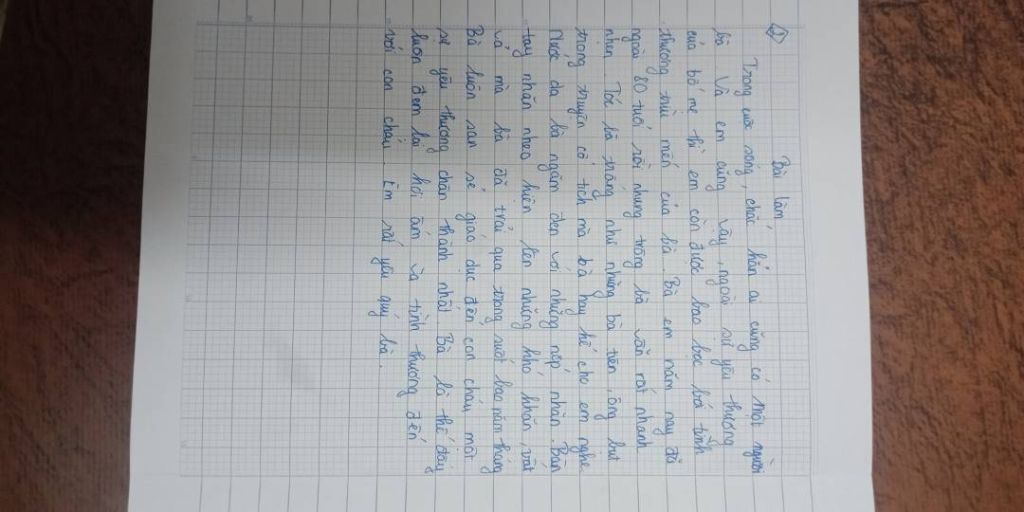 1
Bài làm
Trong cuộc sống, chắc hẳn ai cũng có một người
bà. Và em cũng vậy, ngoài sự yêu thương
của bố mẹ thì em còn được bao bọc bởi tình
thương trìu mến của bà. Bà em năm nay đã
ngoài 80 tuổi rồi nhưng trông bà vẫn rất nhanh
nhẹn. Tóc bà trắng như những bà tiên, ông bụt
trong truyện cổ tích mà bà hay kể cho em nghe
Nước da bà ngăm đen với những nếp nhăn. Bàn
tay nhăn nheo hiện lên những khó khăn, vất
vả mà bà đã trải qua trong suốt bao năm tháng
Bà luôn san sẻ giáo dục đến con cháu một
sự yêu thương chân thành nhất. Bà là thế đấy
luôn đem lại hơi ấm và tình thương đến
với con cháu. Em rất yêu quý bà.